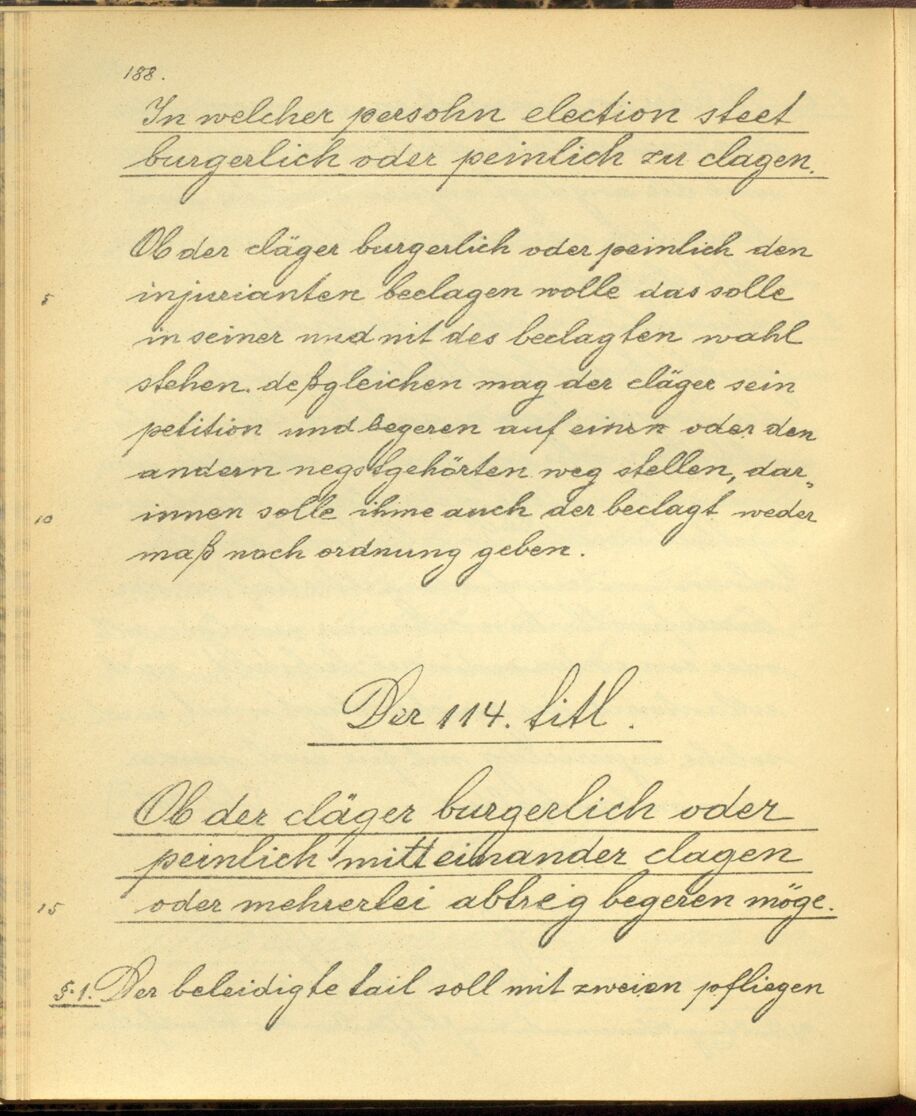 188.
In welcher persohn election steet
burgerlich oder peinlich zu clagen.
Ob der cläger burgerlich oder peinlich den
5 injurianten beclagen wolle das solle
in seiner und nit des beclagten wahl
stehen. deßgleichen mag der cläger sein
petition und begeren auf einen oder den
andern negstgehörten weg stellen, dar-
10 innen solle ihme auch der beclagt weder
maß noch ordnung geben.
Der 114. titl.
Ob der cläger burgerlich oder
peinlich mitteinander clagen
15 oder mehrerlei abtreig begeren möge.
§. 1. Der beleidigte tail soll mit zweien pfliegen